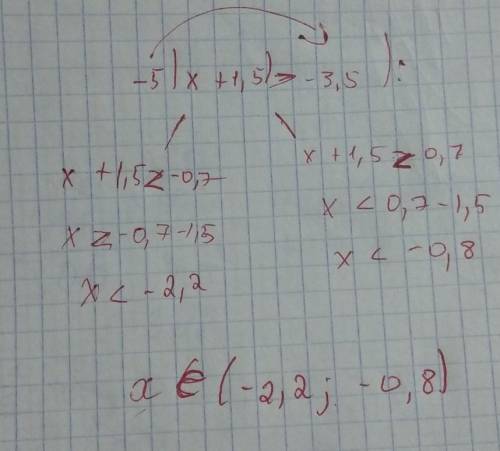 -5|x+1,5|> -3,5 ):
x+1,5 < -0,7
x < -0,7-1,5
x < -2,2
x+1,5 < 0,7
x < 0,7-1,5
x < -0,8
x ∈ (-2,2; -0,8)